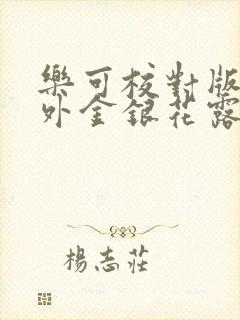 樂可校對版
外金銀花露
楊志莊